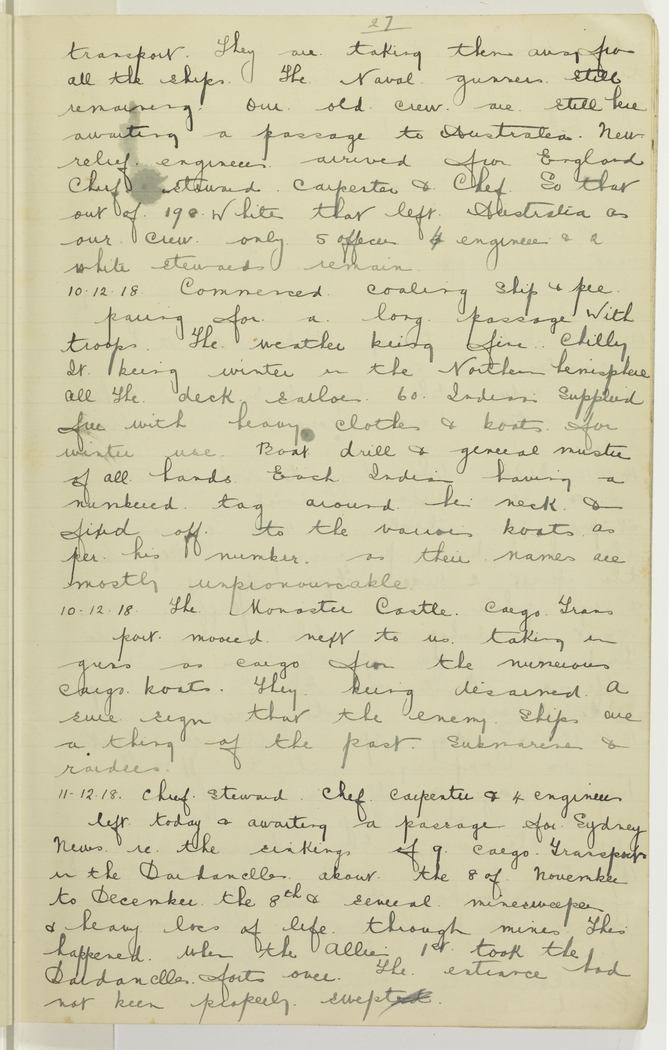 27
transport. They are taking them away from
all the ships. The Naval gunners still
remaining. Our old crew are still here
awaiting a passage to Australia. New
relief engineers arrived from England
Chief Steward Carpenter & Chef. So that
out of 190 White that left Australia as
our crew only 5 officers 4 engineers & 2
white stewards remain.
10.12.18. Commenced coaling ship & pre
paring for a long passage With
troops. The weather being fine. Chilly
It being winter in the Northern hemisphere
all the deck sailors 60. Indians Supplied
free with heavy clothes & boots for
winter use. Boat drill & general muster
of all hands. Each Indian having a
numbered tag around his neck &
fixed off to the various boats as
per his number. as their names are
mostly unpronounceable
10.12.18. The Monaster Castle. Cargo Trans
port moored next to us. taking in
guns as cargo from the numerous
cargo boats. They being disarmed. A
sure sign that the enemy ships are
a thing of the past. Submarines &
raiders.
11-12.18. Chief Steward Chef Carpenter & 4 engineers
left today & awaiting a passage for Sydney
News re the sinkings of 9 cargo Transports
in the Dardanelles about the 8 of November
to December the 8th & several minesweepers
& heavy loss of life through mines This
happened when the Allies 1st took the
Dardanelles forts over. The entrance had
not been properly swepted.